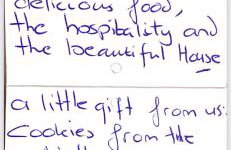 delicious food,
the hospitality and
the beautiful House
a little gift from us:
Cookies from the